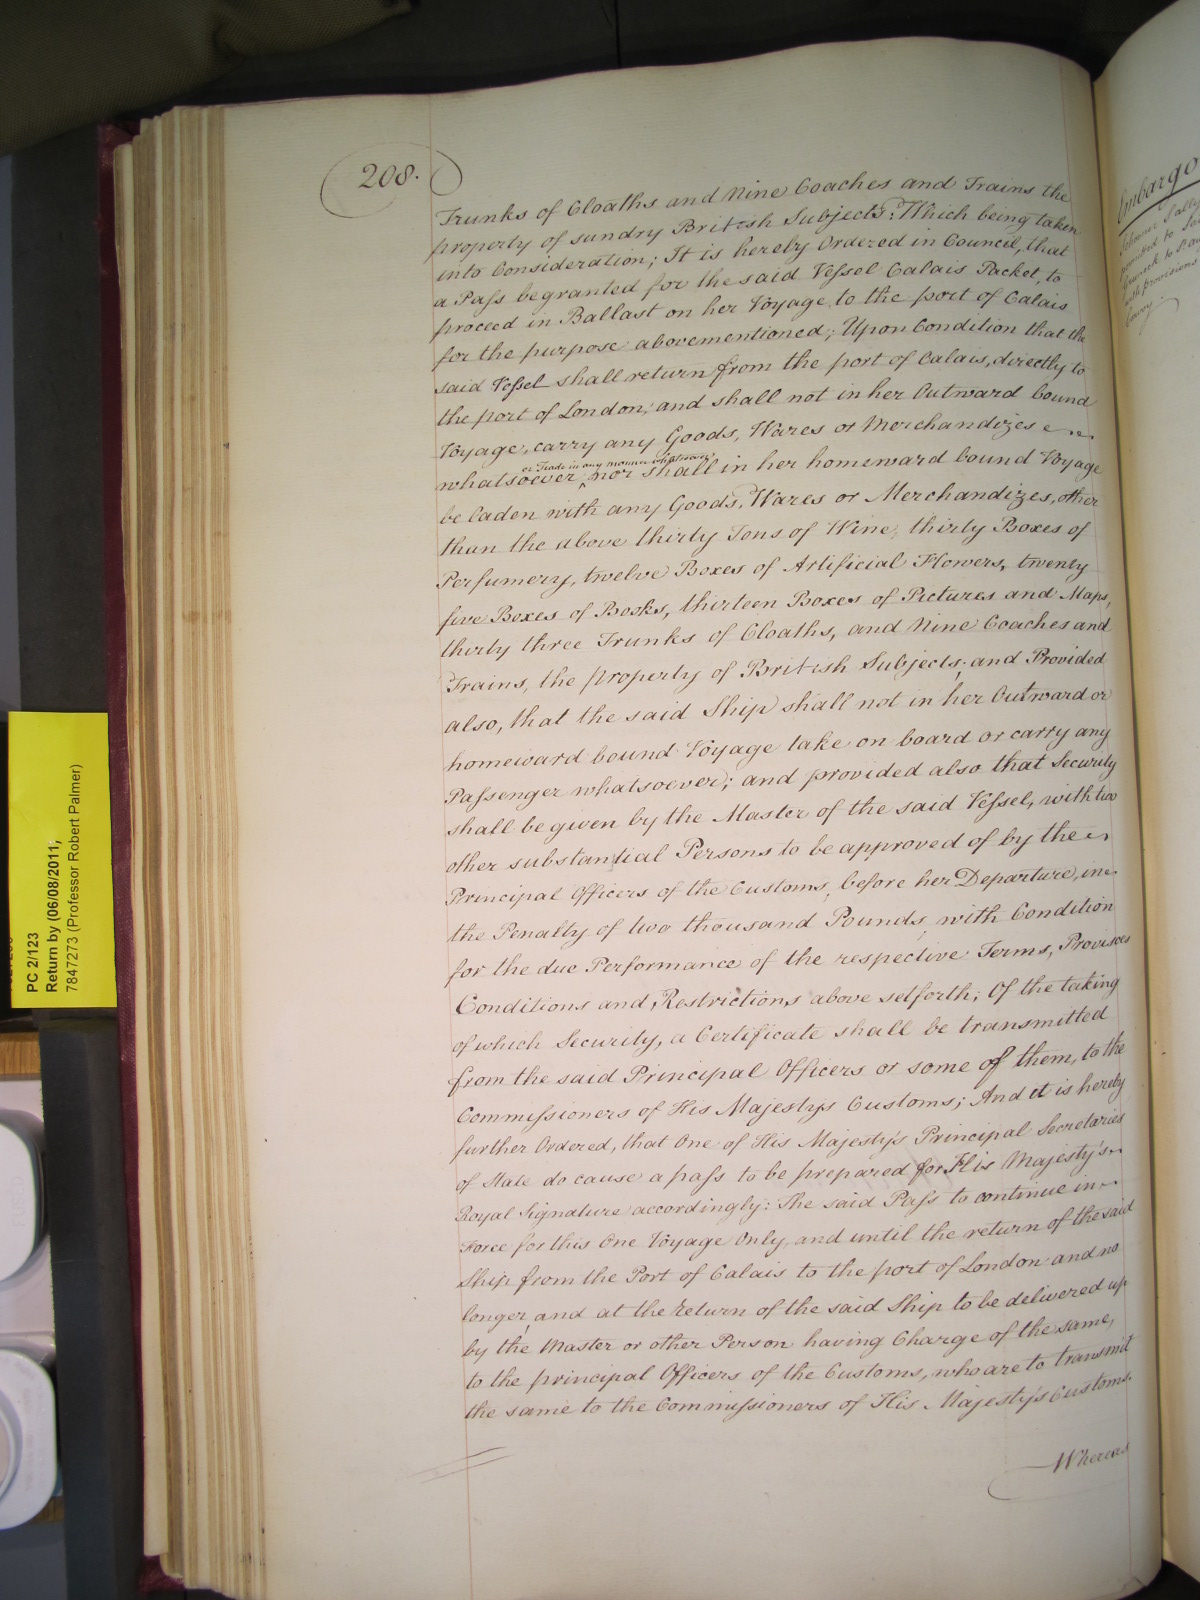 208.
Trunks of Cloaths and Nine Coaches and Trains the
property of sundry British Subjects: Which being taken
into Consideration; It is hereby Ordered in Council, that
a Pass be granted for the said Vessel Calais Packet, to
proceed in Ballast on her Voyage to the port of Calais
for the purpose abovementioned; Upon Condition that the
said Vessel shall return from the port of Calais, directly to
the port of London, and shall not in her Outward bound
Voyage, carry any Goods, Wares or Merchandizes
or Trade in any manner whatsoever,
whatsoever, nor shall in her homeward bound Voyage
be laden with any Goods, Wares or Merchandizes, other
than the above thirty Tons of Wine, thirty Boxes of
Perfumery, twelve Boxes of Artificial Flowers, twenty
five Boxes of Books, thirteen Boxes of Pictures and Maps,
thirty three Trunks of Cloaths, and Nine Coaches and
Trains, the property of British Subjects; and Provided
also, that the said Ship shall not in her Outward or
homeward bound Voyage take on board or carry any
Passenger whatsoever; and provided also that Security
shall be given by the Master of the said Vessel, with two
other substantial Persons to be approved of by the
Principal Officers of the Customs, before her Departure, in
the Penalty of two thousand Pounds, with Condition
for the due Performance of the respective Terms, Provisoes
Conditions and Restrictions above setforth; Of the taking
of which Security, a Certificate shall be transmitted
from the said Principal Officers or some of them, to the
Commissioners of His Majestys Customs; And it is hereby
further Ordered, that One of His Majesty's Principal Secretaries
of State do cause a pass to be prepared for His Majesty's
Royal Signature accordingly: The said Pass to continue in
Force for this One Voyage Only, and until the return of the said
Ship from the Port of Calais to the port of London and no
longer, and at the return of the said Ship to be delivered up
by the Master or other Person having Charge of the same,
to the principal Officers of the Customs, who are to transmit
the same to the Commissioners of His Majesty's Customs.
Whereas
Embargo
Schooner Sally
permitted to
with provisions
Convoy.
PC 2/123
Return by (06/08/2011;
7847273 (Professor Robert Palmer)